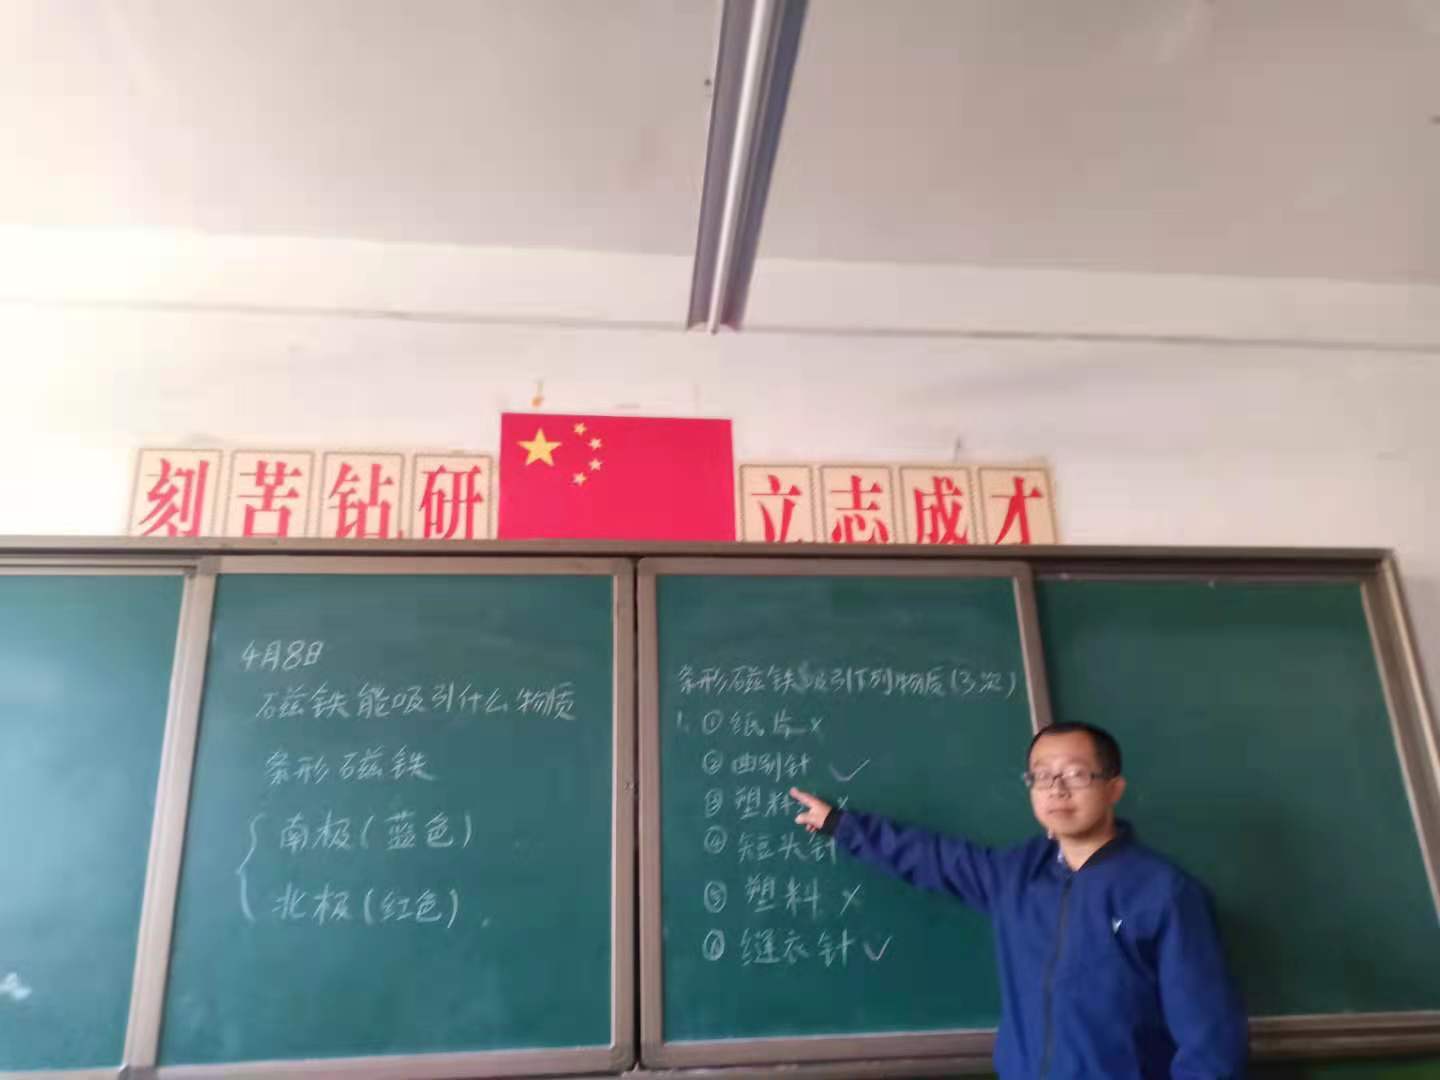 刻苦钻研 立志成才
4月8日
磁铁能吸引什么物质
条形磁铁
南极(蓝色)
北极(红色).
条形磁铁吸引下列物质(3次)
1. ①纸片×
②曲别针 ✓
③塑料 ×
④短头针
⑤塑料 ×
⑥缝衣针✓